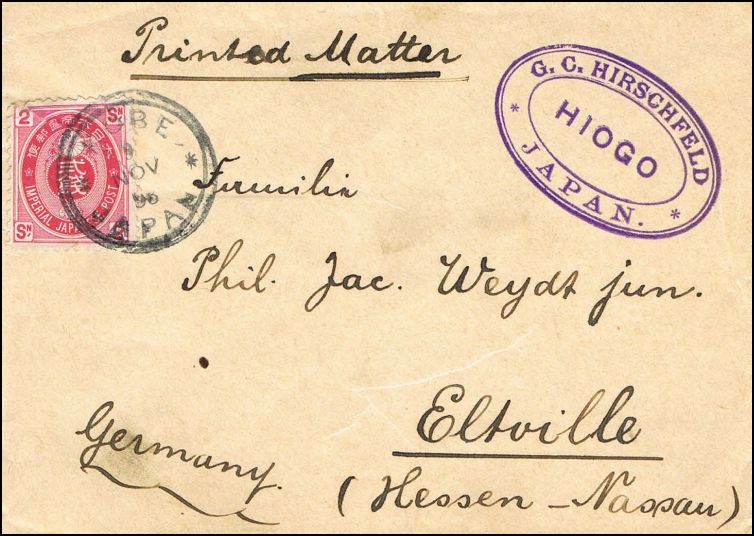 Printed Matter
G. C. HIRSCHFELD
HIOGO
JAPAN.
2 SN
大日本帝國郵便
IMPERIAL JAPANESE POST
SN 2
9
NOV
96
JAPAN
Familie
Phil. Jac. Weydt jun.
Eltville
Germany.
(Hessen-Nassau)